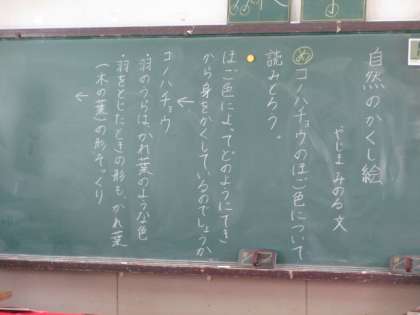 自然のかくし絵
やじま みのる 文
め コノハチョウのほご色について
読みとろう。
ほご色によってどのようにてき
から身をかくしているのでしょうか。
↓
コノハチョウ
・羽のうらは、かれ葉のような色
・羽をとじたときの形も、かれ葉
(木の葉)の形そっくり
↓